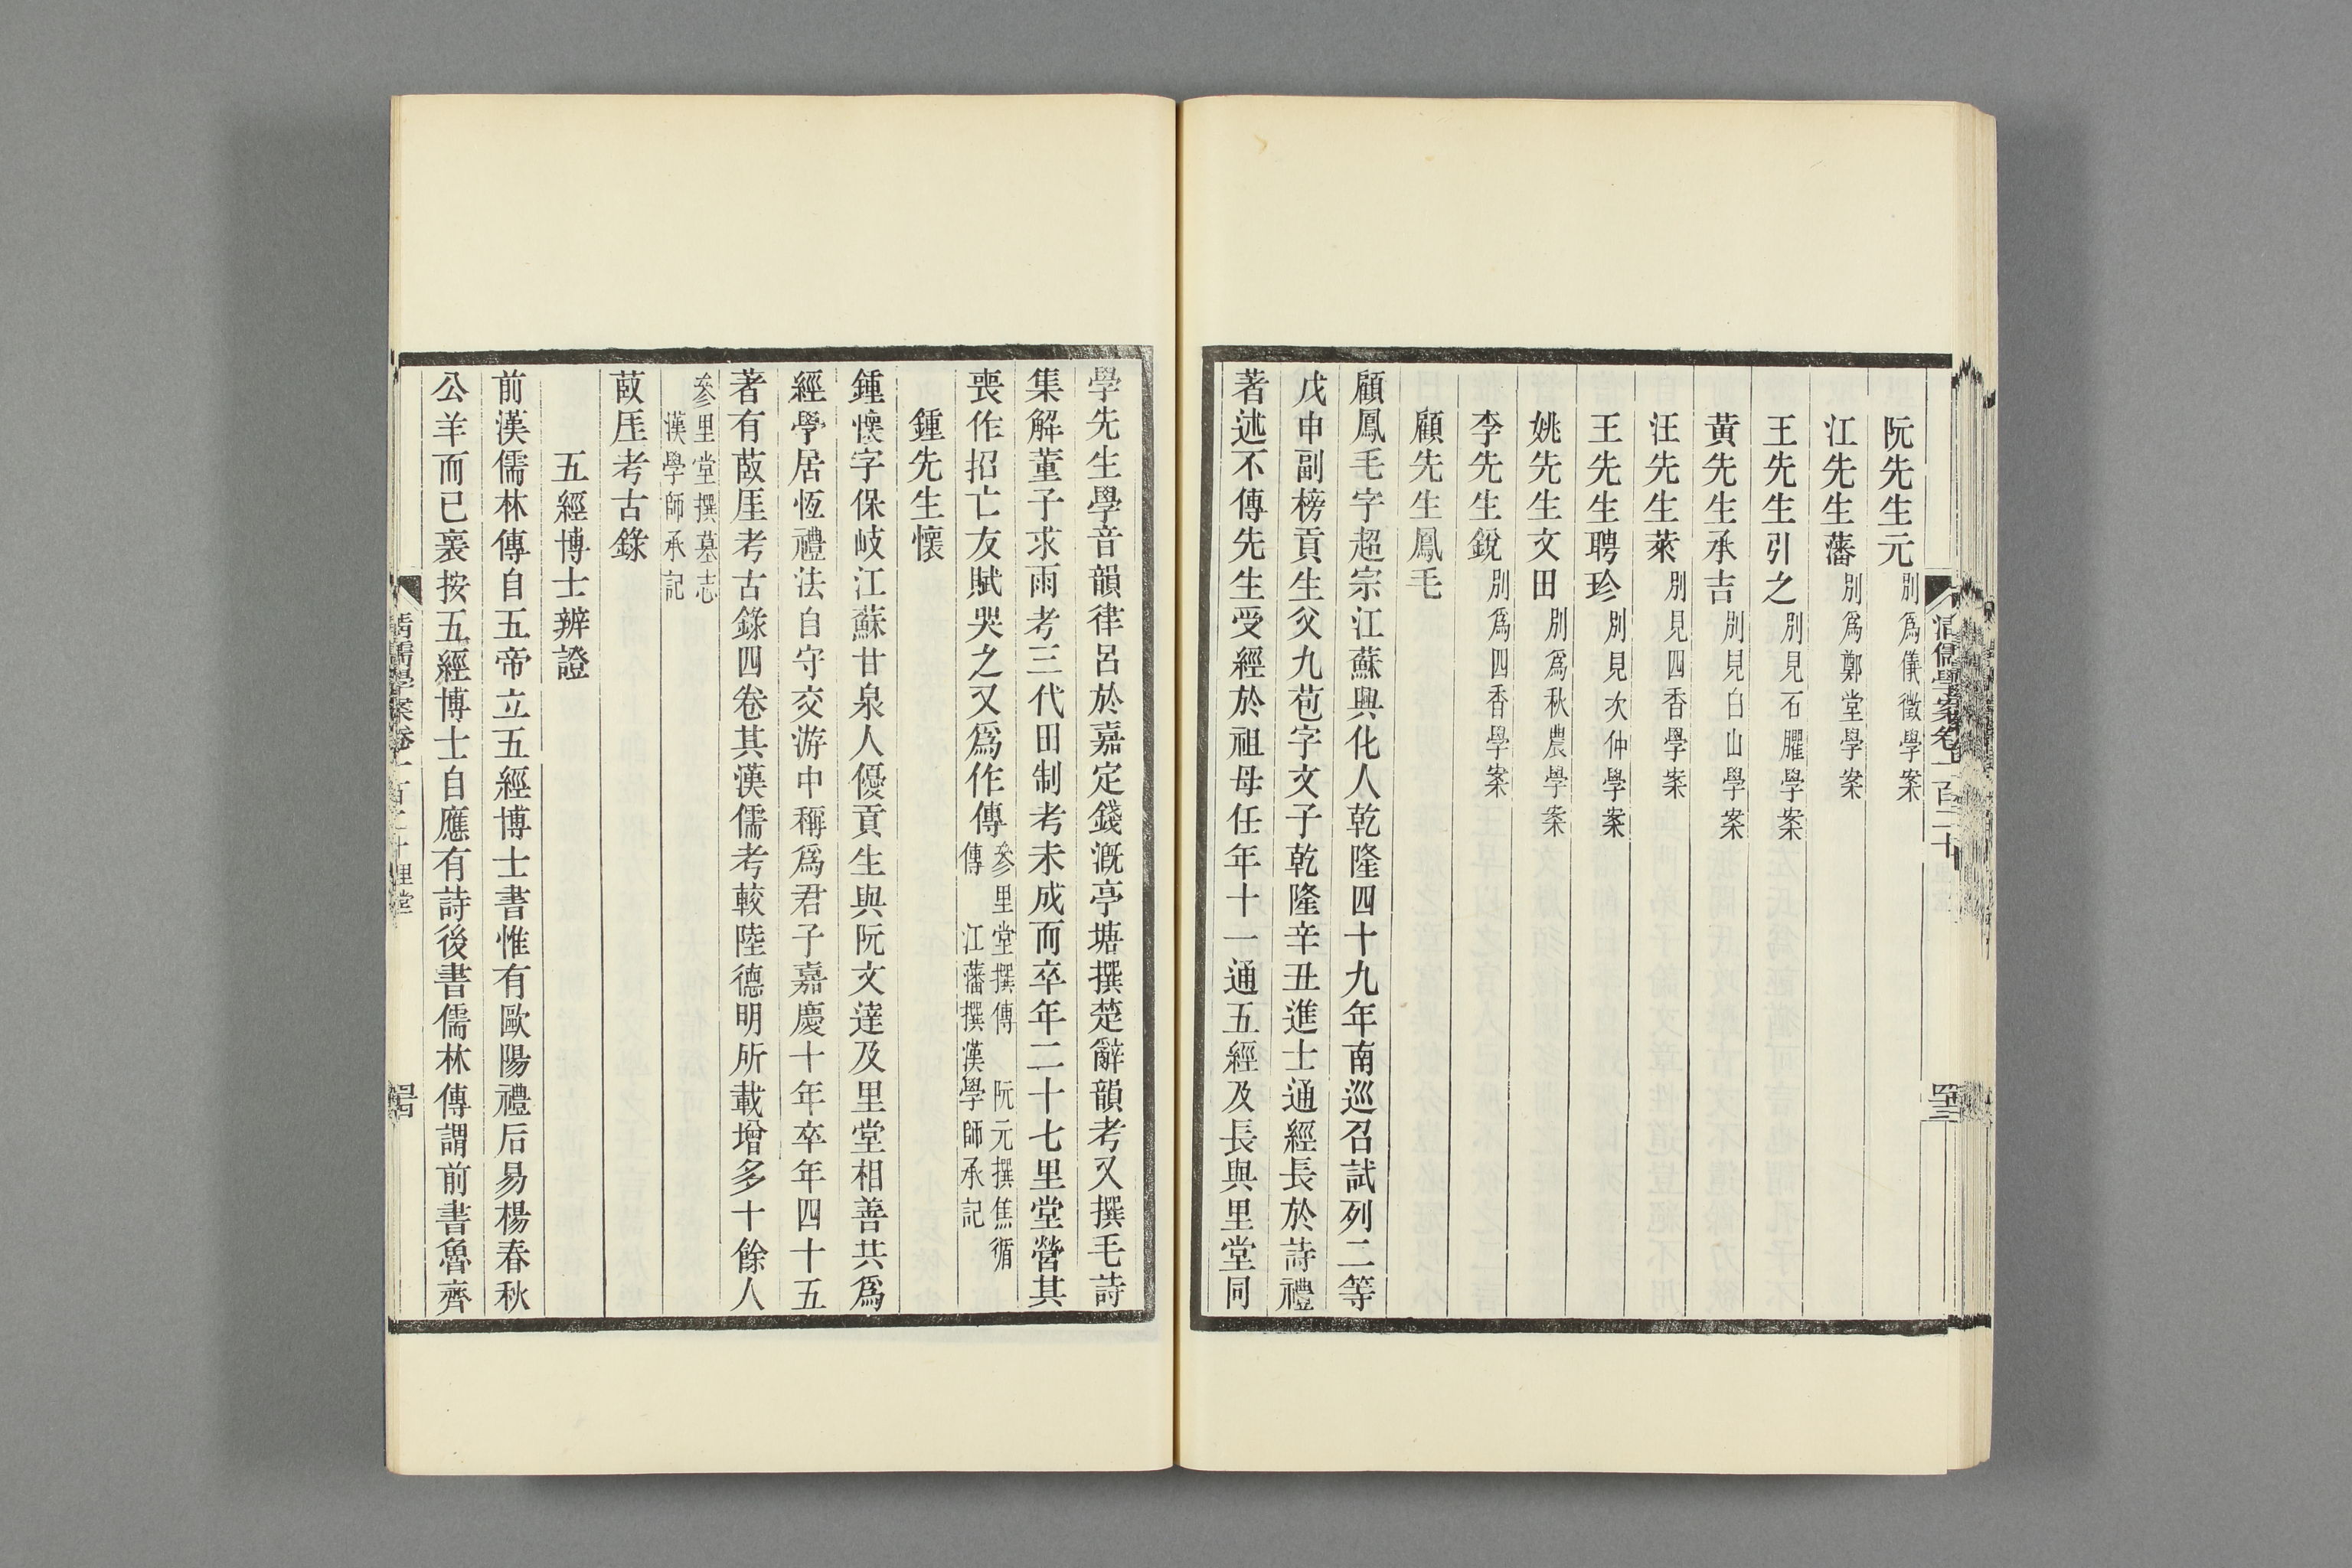 清儒學案卷一百二十
阮先生元 別爲儀徵學案
江先生藩 別爲鄭堂學案
王先生引之 別見石臞學案
黃先生承吉 別見白山學案
汪先生萊 別見四香學案
王先生聘珍 別見次仲學案
姚先生文田 別爲秋農學案
李先生銳 別爲四香學案
顧先生鳳毛
顧鳳毛字超宗江蘇興化人乾隆四十九年南巡召試列二等
戊申副榜貢生父九苞字文子乾隆辛丑進士通經長於詩禮
著述不傳先生受經於祖母任年十一通五經及長與里堂同
學先生學音韻律呂於嘉定錢漑亭塘撰楚辭韻考又撰毛詩
集解董子求雨考三代田制考未成而卒年二十七里堂營其
喪作招亡友賦哭之又爲作傳 參里堂撰傳 阮元撰焦循
傳 江藩撰漢學師承記
鍾先生懷
鍾懷字保岐江蘇甘泉人優貢生與阮文達及里堂相善共爲
經學居恆禮法自守交游中稱爲君子嘉慶十年卒年四十五
著有菣厓考古錄四卷其漢儒考較陸德明所載增多十餘人
參里堂撰墓志
漢學師承記
菣厓考古錄
五經博士辨證
前漢儒林傳自五帝立五經博士書惟有歐陽禮后易楊春秋
公羊而已裹按五經博士自應有詩後書儒林傳謂前書魯齊
清儒學案卷一百二十 里堂